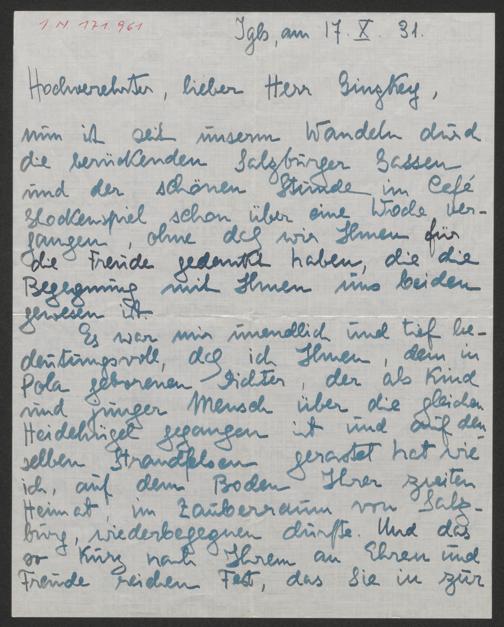 I.N. 171.961
Igls, am 17. X. 31.
Hochverehrter, lieber Herr Ginzkey,
nun ist seit unserm Wandeln durch
die berückenden Salzburger Gassen
und der schönen Stunde im Café
Glockenspiel schon über eine Woche ver-
gangen, ohne daß wir Ihnen für
die Freude gedankt haben, die die
Begegnung mit Ihnen uns beiden
gewesen ist.
Es war mir unendlich und tief be-
deutungsvoll, daß ich Ihnen, dem in
Pola geborenen Dichter, der als Kind
und junger Mensch über die gleichen
Heidehügel gegangen ist und auf den
selben Strandfelsen gerastet hat wie
ich, auf dem Boden Ihrer zweiten
Heimat, im Zauberraum von Salz-
burg, wiederbegegnen durfte. Und das
so kurz nach Ihrem an Ehren und
Freude reichen Fest, das Sie in zur